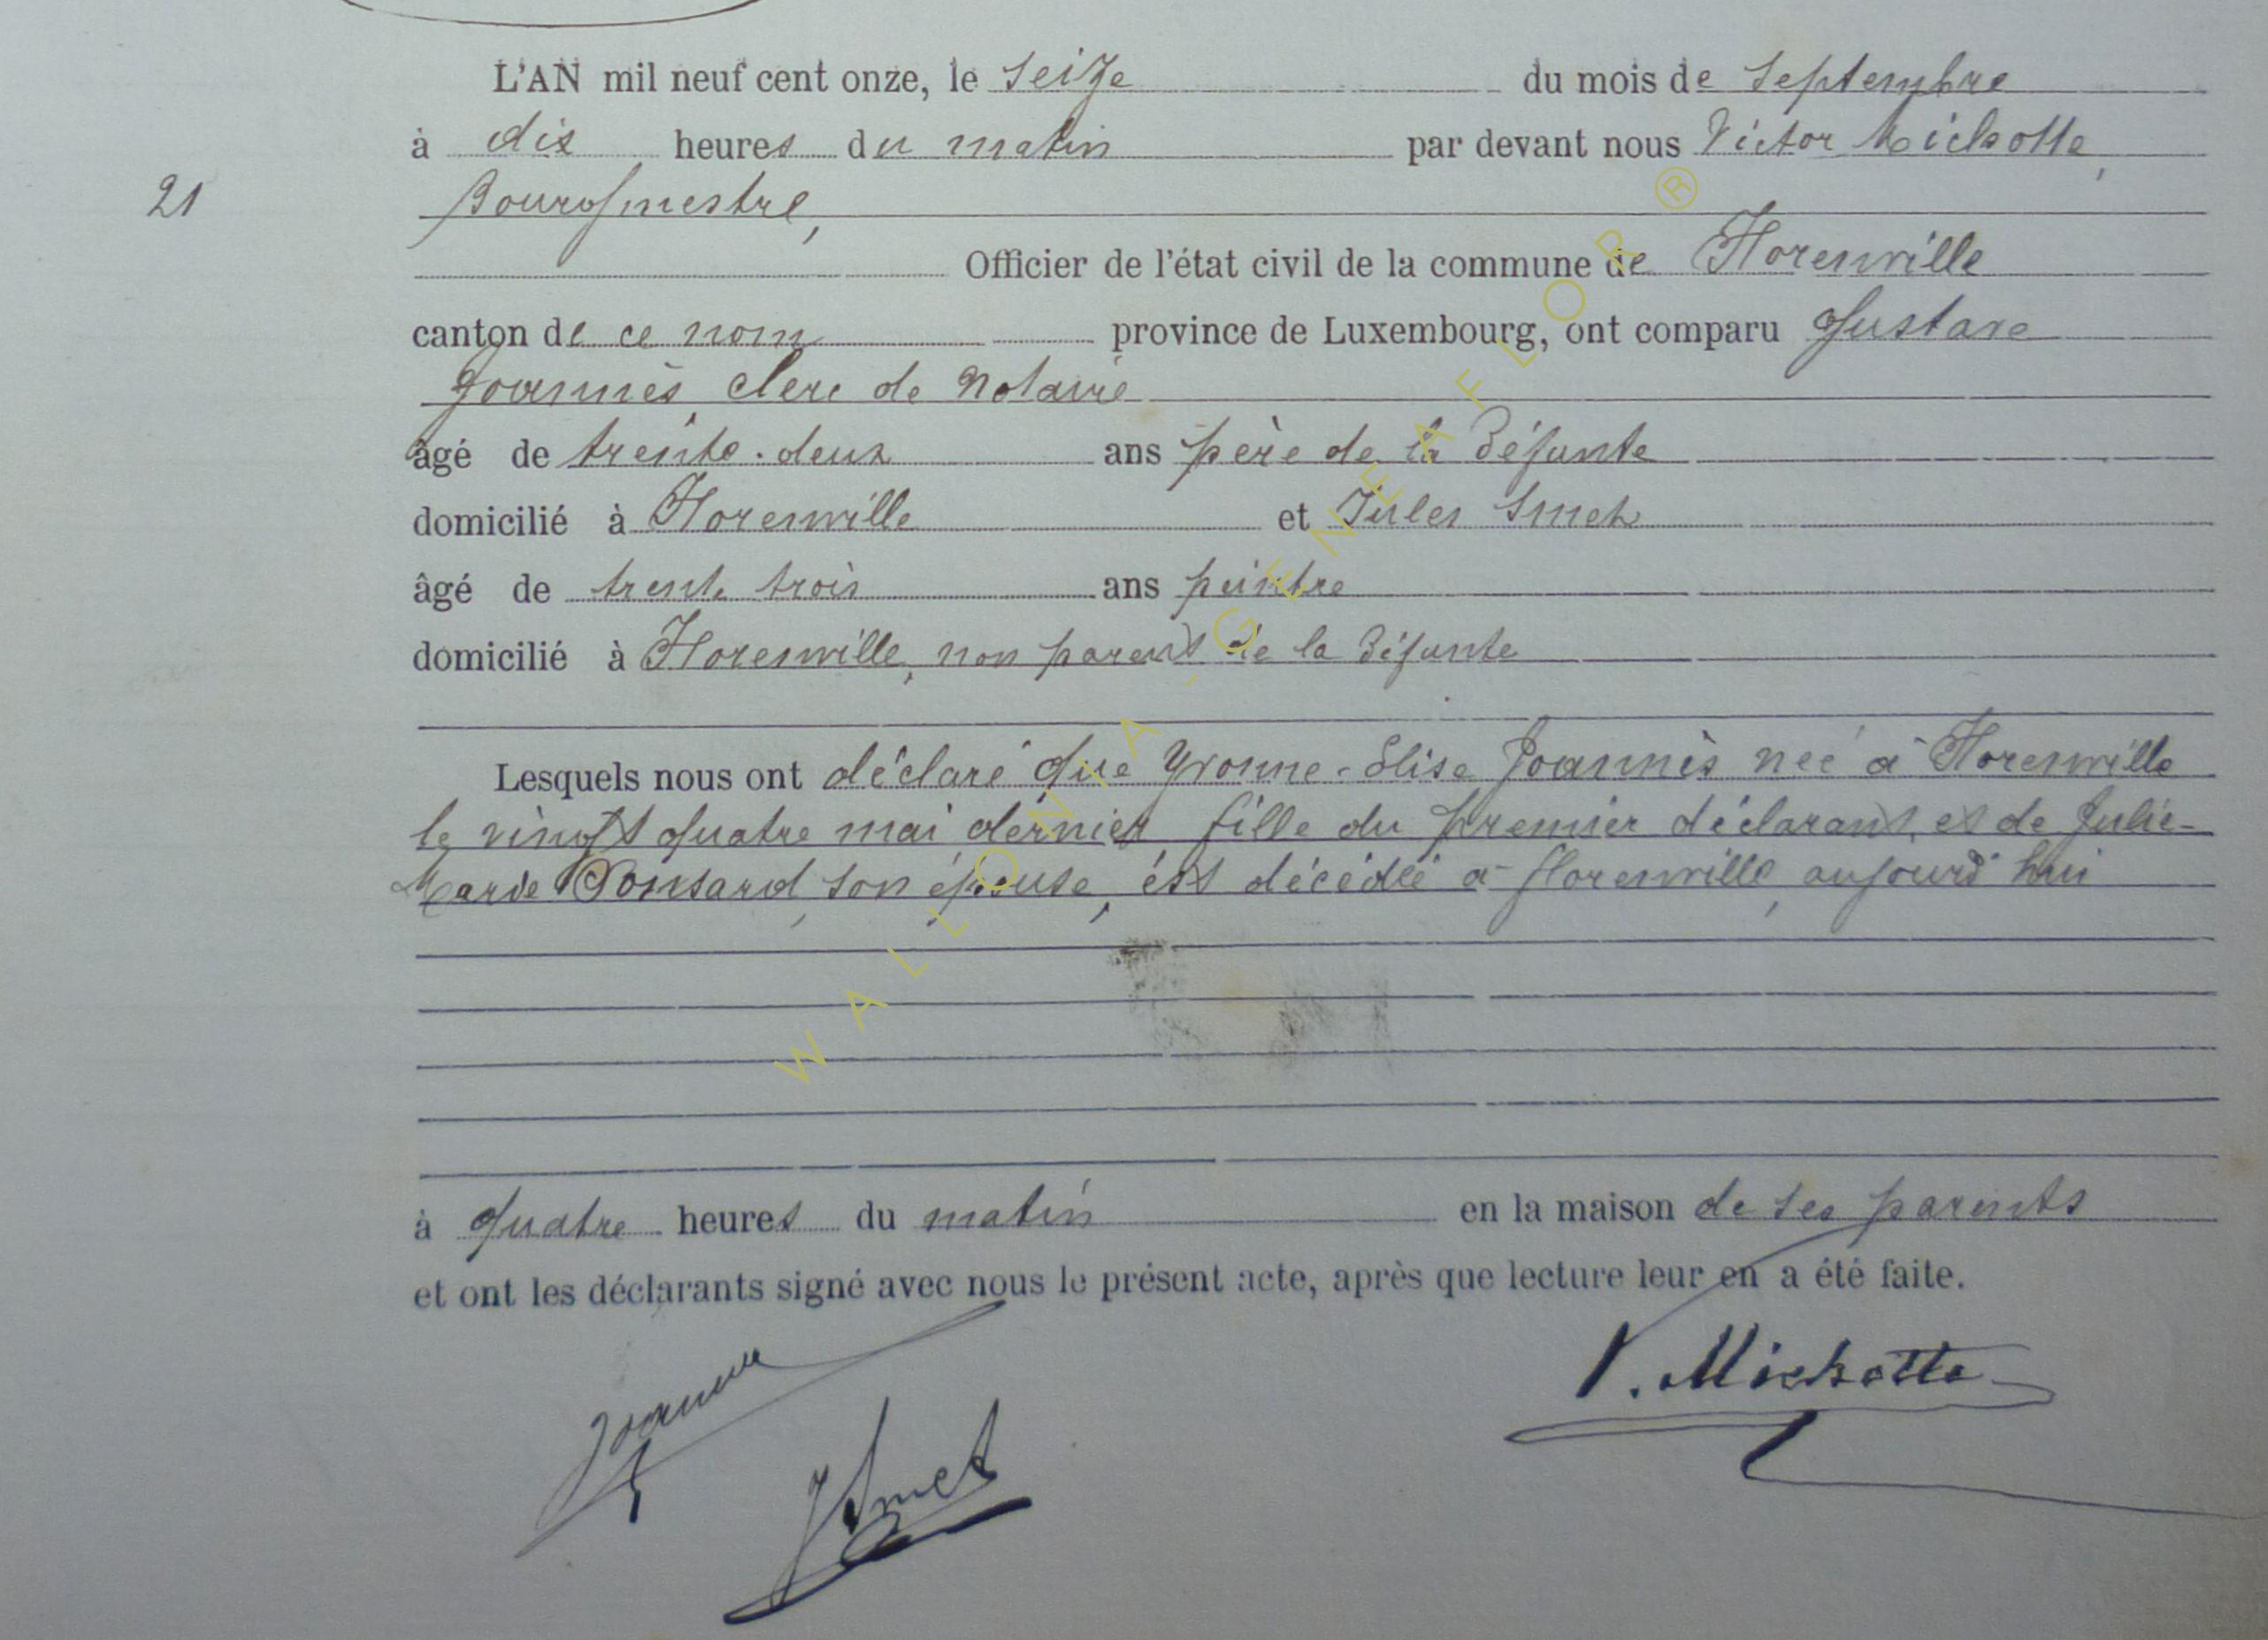 L'AN mil neuf cent onze, le seize du mois de septembre
à dix heures du matin par devant nous Victor Michotte,
21 Bourgmestre,
Officier de l'état civil de la commune de Florenville
canton de ce nom province de Luxembourg, ont comparu Gustave
Joannès clerc de Notaire
âgé de trente-deux ans père de la défunte
domicilié à Florenville et Jules Smet
âgé de trente trois ans peintre
domicilié à Florenville, non parent de la défunte
Lesquels nous ont déclaré que Yvonne-Elise Joannès née à Florenville
le vingt quatre mai dernier fille du premier déclarant et de Julie-
Marie Ponsard, son épouse, est décédée à florenville, aujourd'hui
à quatre heures du matin en la maison de ses parents
et ont les déclarants signé avec nous le présent acte, après que lecture leur en a été faite.
V. Michotte
JSmet
WALLONIA-GENEAFLOR ®